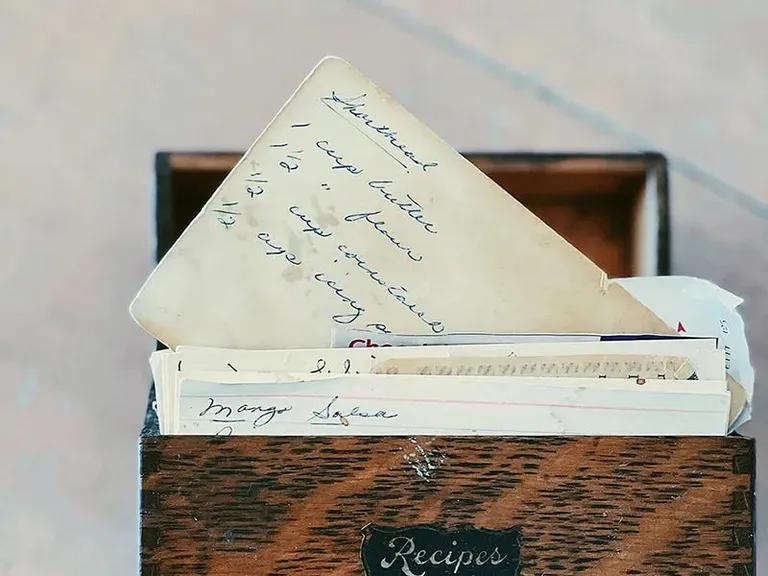 Shortbread
1 cup butter
1 1/2 " flour
1/2 cup cornstarch
1/2 cup icing
Mango Salsa
Recipes